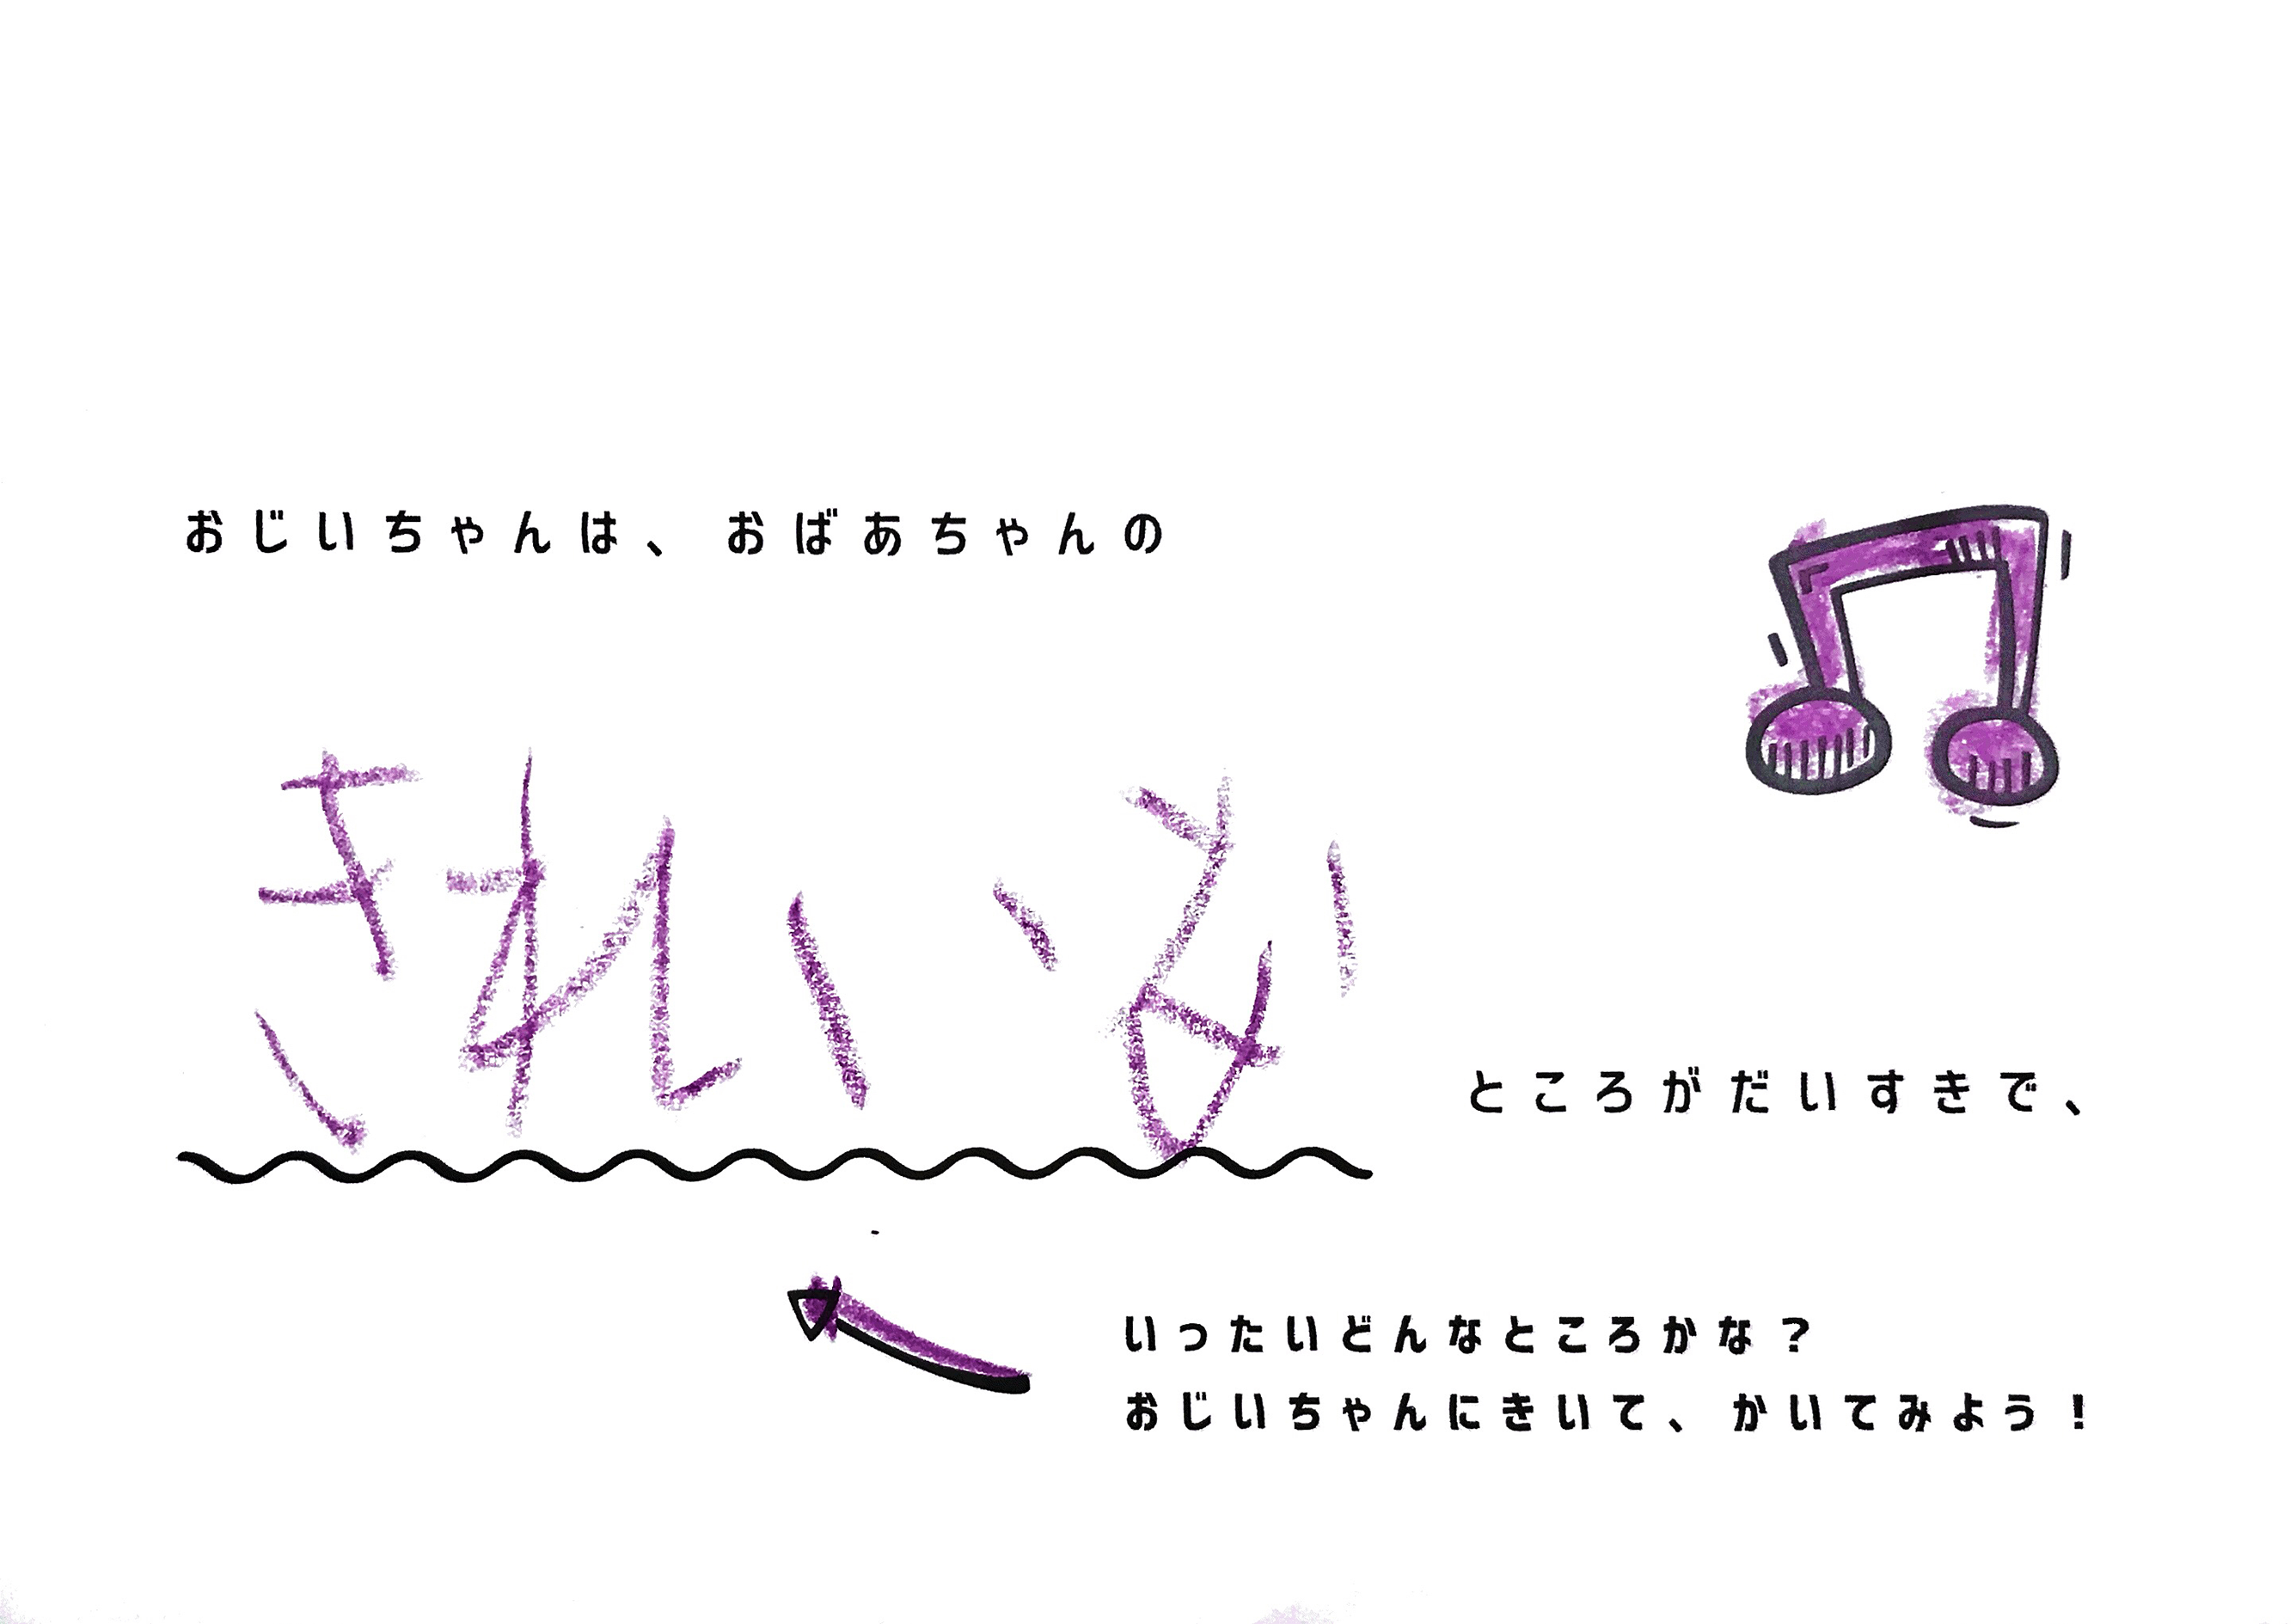 おじいちゃんは、おばあちゃんの
きれいな
ところがだいすきで、
いったいどんなところかな？
おじいちゃんにきいて、かいてみよう！